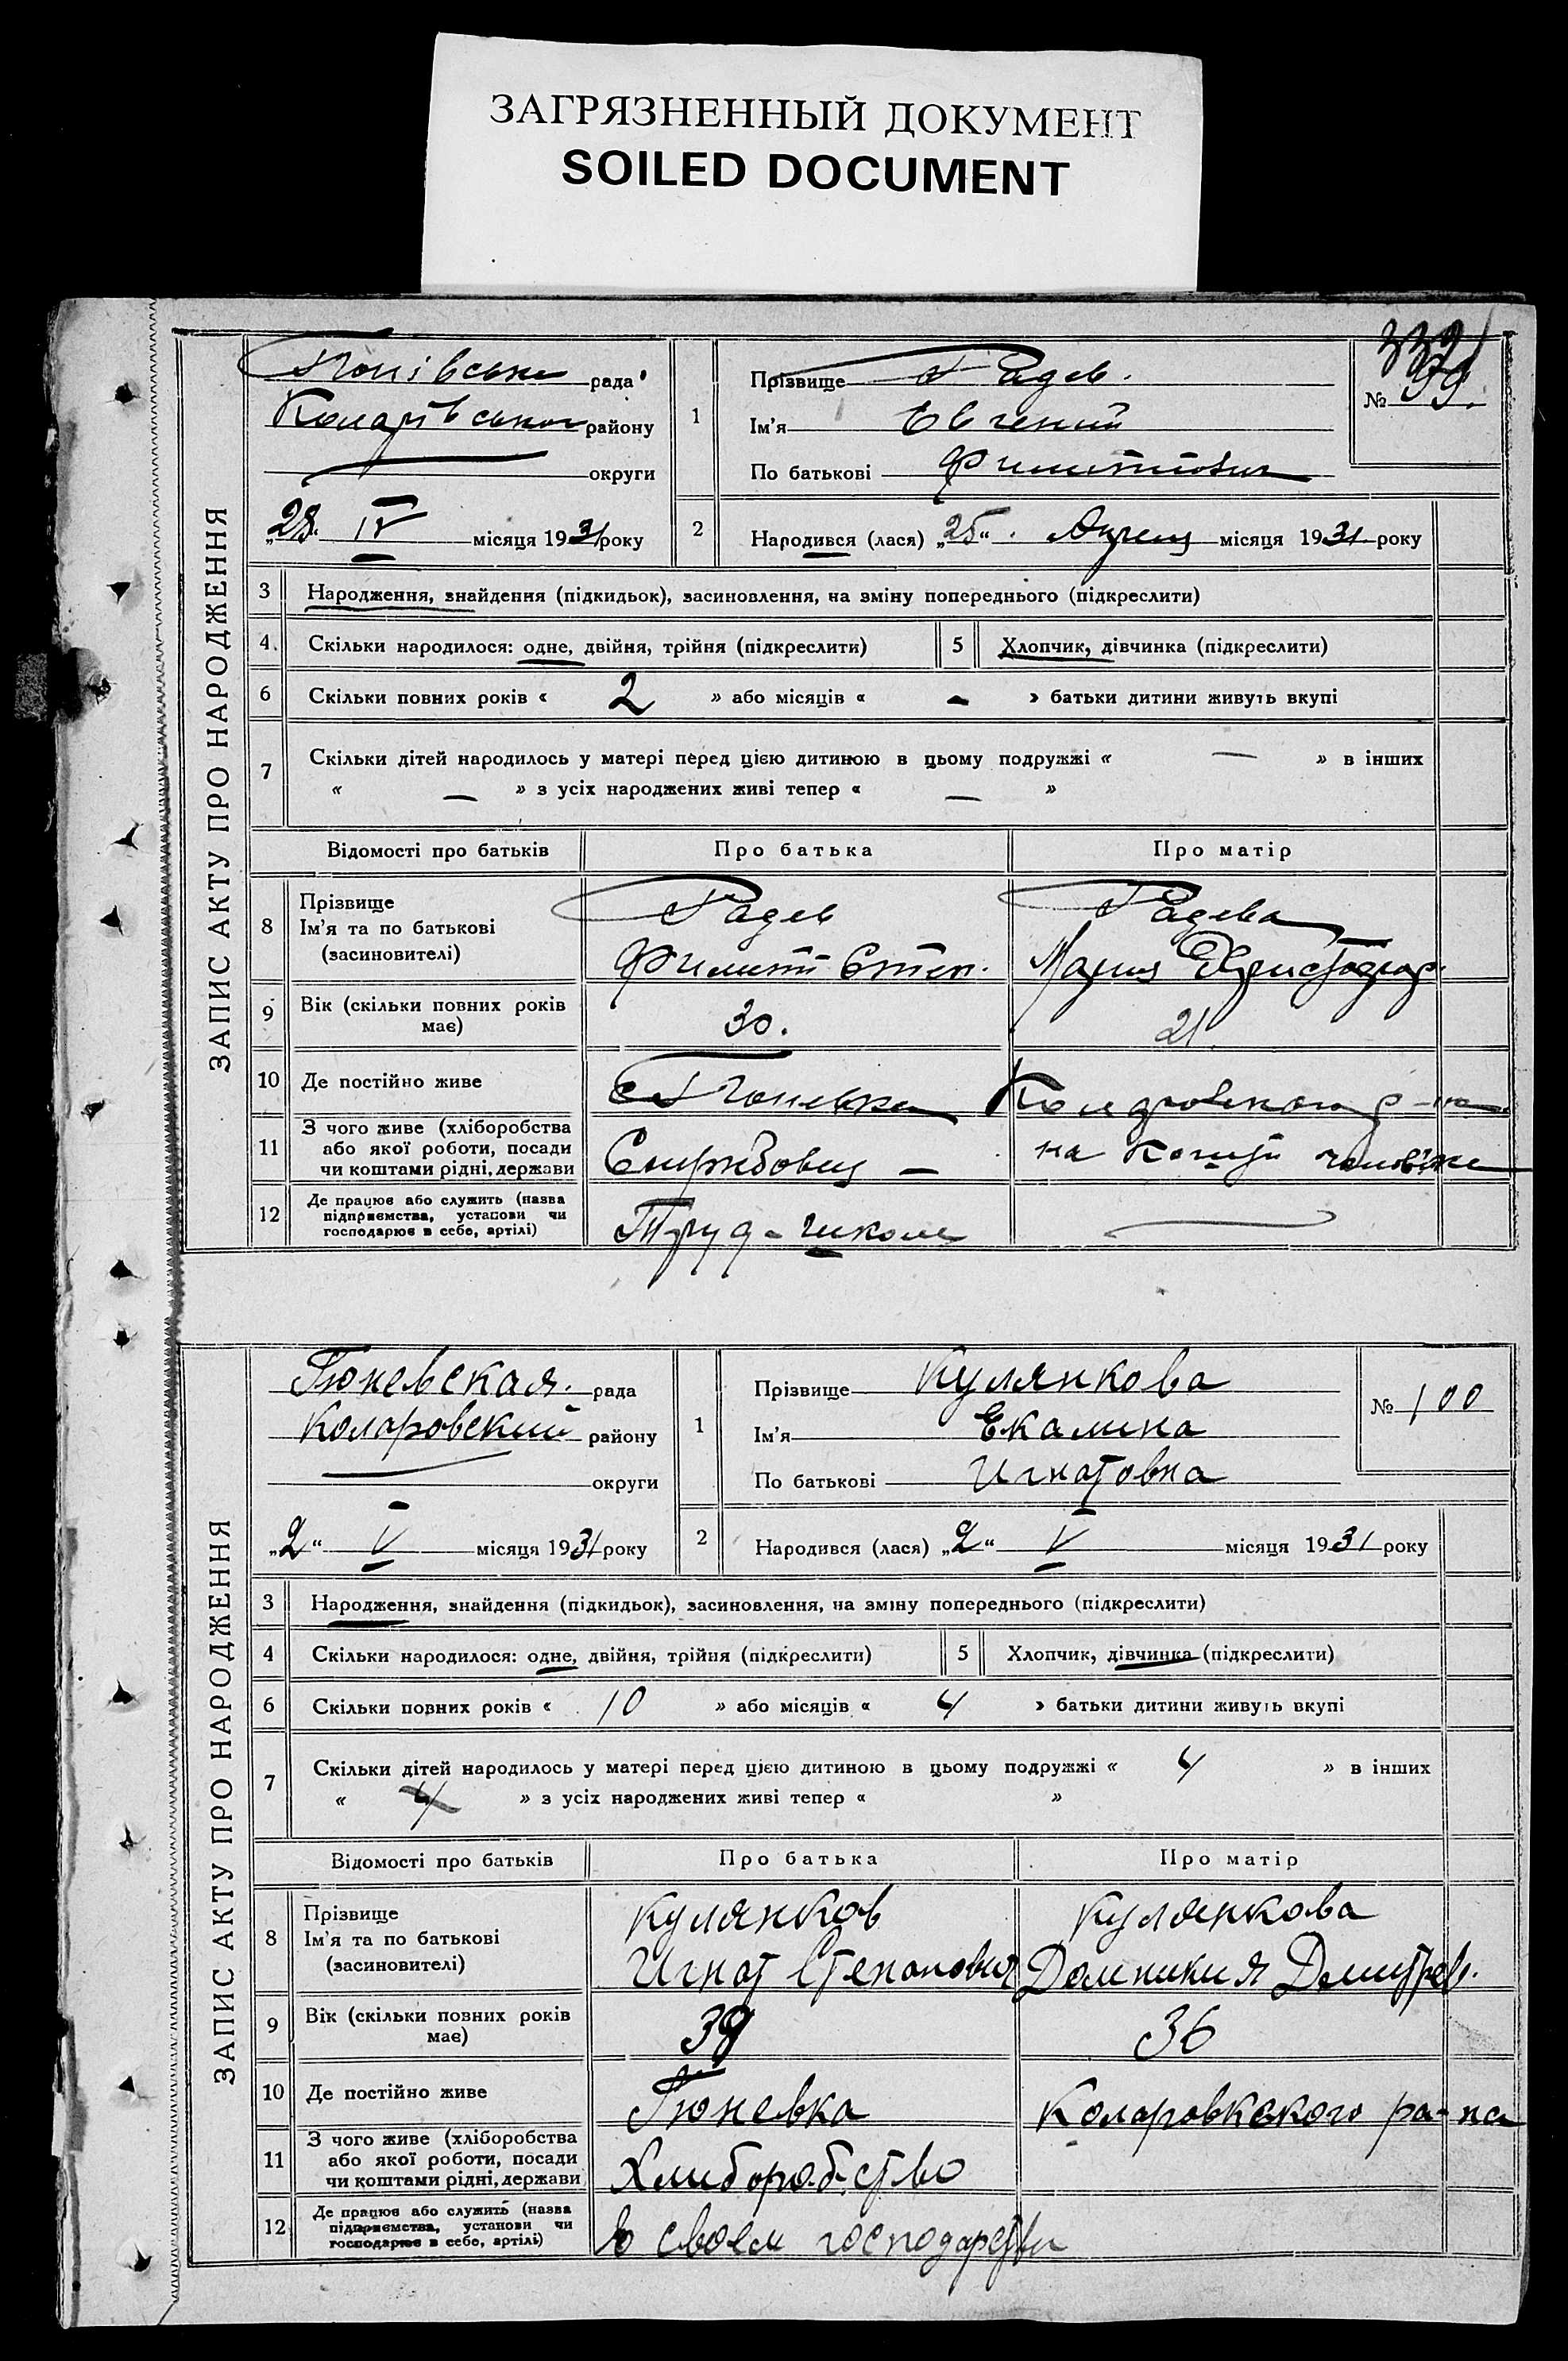 ЗАГРЯЗНЕННЫЙ ДОКУМЕНТ
SOILED DOCUMENT
ЗАПИС АКТУ ПРО НАРОДЖЕННЯ
рада
району
округи
„28“ IV місяця 1931 року
1
Прізвище Радев.
Ім'я Евгений
По батькові
№ 99.
2
Народився (лася) „25“ місяця 1931 року
3 Народження, знайдення (підкидьок), засиновлення, на зміну попереднього (підкреслити)
4. Скільки народилося: одне, двійня, трійня (підкреслити)
5 Хлопчик, дівчинка (підкреслити)
6 Скільки повних років « 2 » або місяців « — » батьки дитини живуть вкупі
7 Скільки дітей народилось у матері перед цією дитиною в цьому подружжі « — » в інших
« — » з усіх народжених живі тепер « — »
Відомості про батьків Про батька Про матір
8 Прізвище
Ім'я та по батькові
(засиновителі)
Радев
Филипп Степ.
Радева
Мария
9 Вік (скільки повних років
має)
30. 21.
10 Де постійно живе
11 З чого живе (хліборобства
або якої роботи, посади
чи коштами рідні, держави
на
12 Де працює або служить (назва
підприємства, установи чи
господарює в себе, артілі)
Труд-школе
ЗАПИС АКТУ ПРО НАРОДЖЕННЯ
Гюневская. рада
Коларовский району
округи
„2“ V місяця 1931 року
1
Прізвище Кулянкова
Ім'я Екалина
По батькові Игнатовна
№ 100
2
Народився (лася) „2“ V місяця 1931 року
3 Народження, знайдення (підкидьок), засиновлення, на зміну попереднього (підкреслити)
4 Скільки народилося: одне, двійня, трійня (підкреслити)
5 Хлопчик, дівчинка (підкреслити)
6 Скільки повних років « 10 » або місяців « 4 » батьки дитини живуть вкупі
7 Скільки дітей народилось у матері перед цією дитиною в цьому подружжі « 4 » в інших
« 4 » з усіх народжених живі тепер « »
Відомості про батьків Про батька Про матір
8 Прізвище
Ім'я та по батькові
(засиновителі)
Кулянков
Игнат Степанович
Кулянкова
Домникия Дмитрев.
9 Вік (скільки повних років
має)
36
10 Де постійно живе
Гюневка Коларовкского ра-на
11 З чого живе (хліборобства
або якої роботи, посади
чи коштами рідні, держави
Хлиборобство
12 Де працює або служить (назва
підприємства, установи чи
господарює в себе, артілі)
в своем господарстви